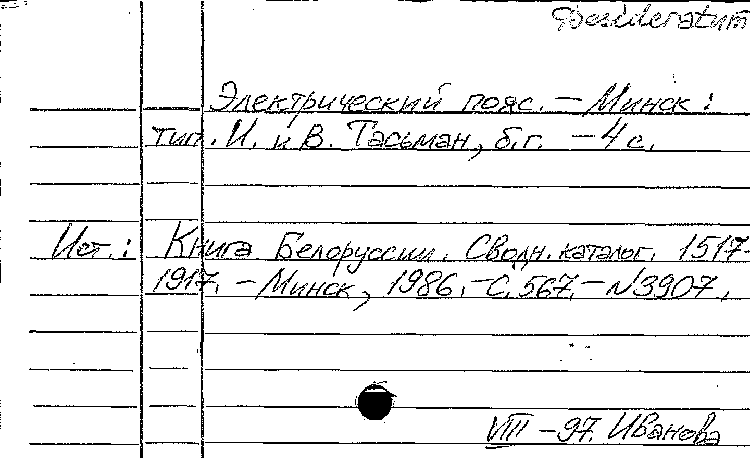 Desideratum
Электрический пояс. – Минск:
тип. И. и В. Тасьман, б.г. – 4 с.
Ист.: Книга Белоруссии. Сводн. каталог. 1517-
1917. – Минск, 1986. – С. 567. – N3907.
VIII – 97. Иванова